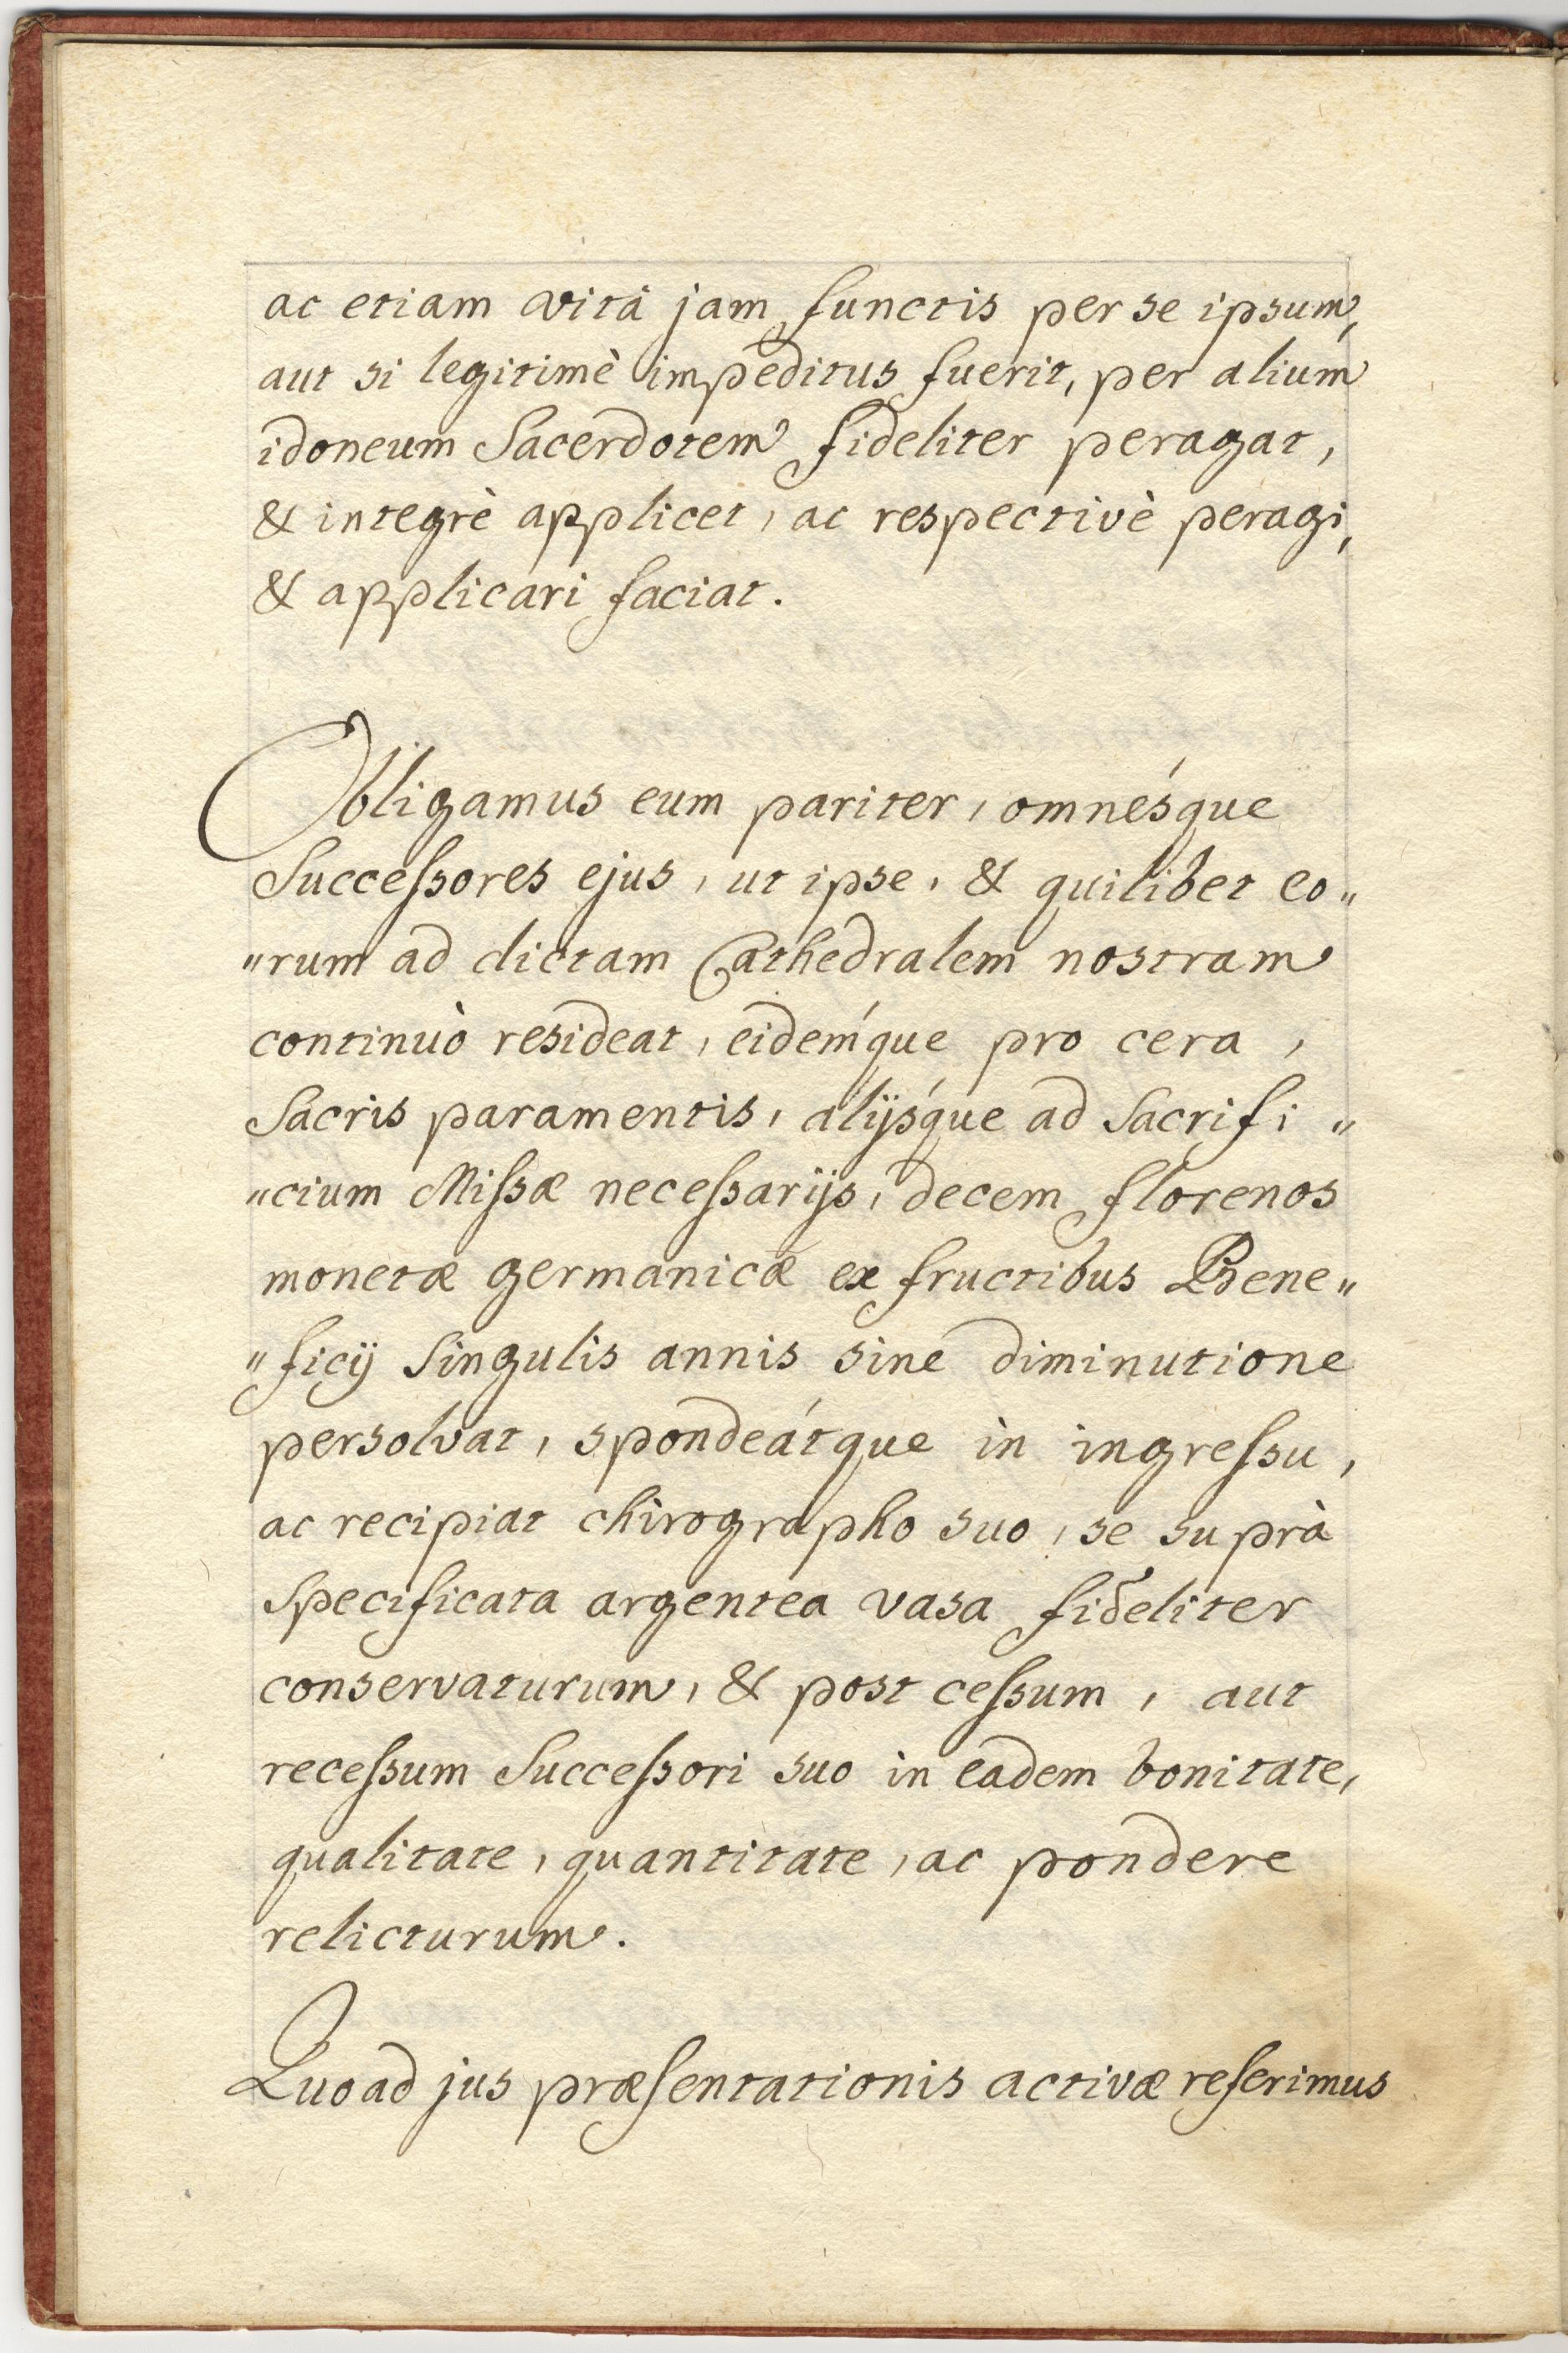 ac etiam vitâ jam functis per se ipsum,
aut si legitimè impeditus fuerit, per alium
idoneum Sacerdotem fideliter peragat,
& integrè applicet, ac respectivè peragi,
& applicari faciat.
Obligamus eum pariter, omnésque
Succeſsores ejus, ut ipse, & quilibet eo„
„rum ad dictam Cathedralem nostram
continuò resideat, eidemq́ue pro cera,
Sacris paramentis, alijsq́ue ad Sacrifi„
„cium Miſsæ neceſsarijs, decem florenos
monetæ germanicæ ex fructibus Bene„
„ficij Singulis annis sine diminutione
persolvat, spondeátque in ingreſsu,
ac recipiat chirographo suo, se suprà
Specificata argentea vasa fideliter
conservaturum, & post ceſsum, aut
receſsum Succeſsori suo in eadem bonitate,
qualitate, quantitate, ac pondere
relicturum.
Quoad jus præſentationis activæ referimus